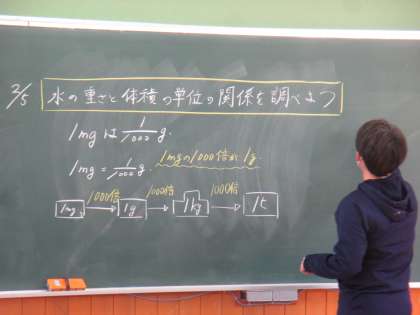 2/5
水の重さと体積の単位の関係を調べよう
1mgは1/1000g.
1mg = 1/1000g 1mgの1000倍が1g
1mg 1000倍 1g 1000倍 1kg 1000倍 1t